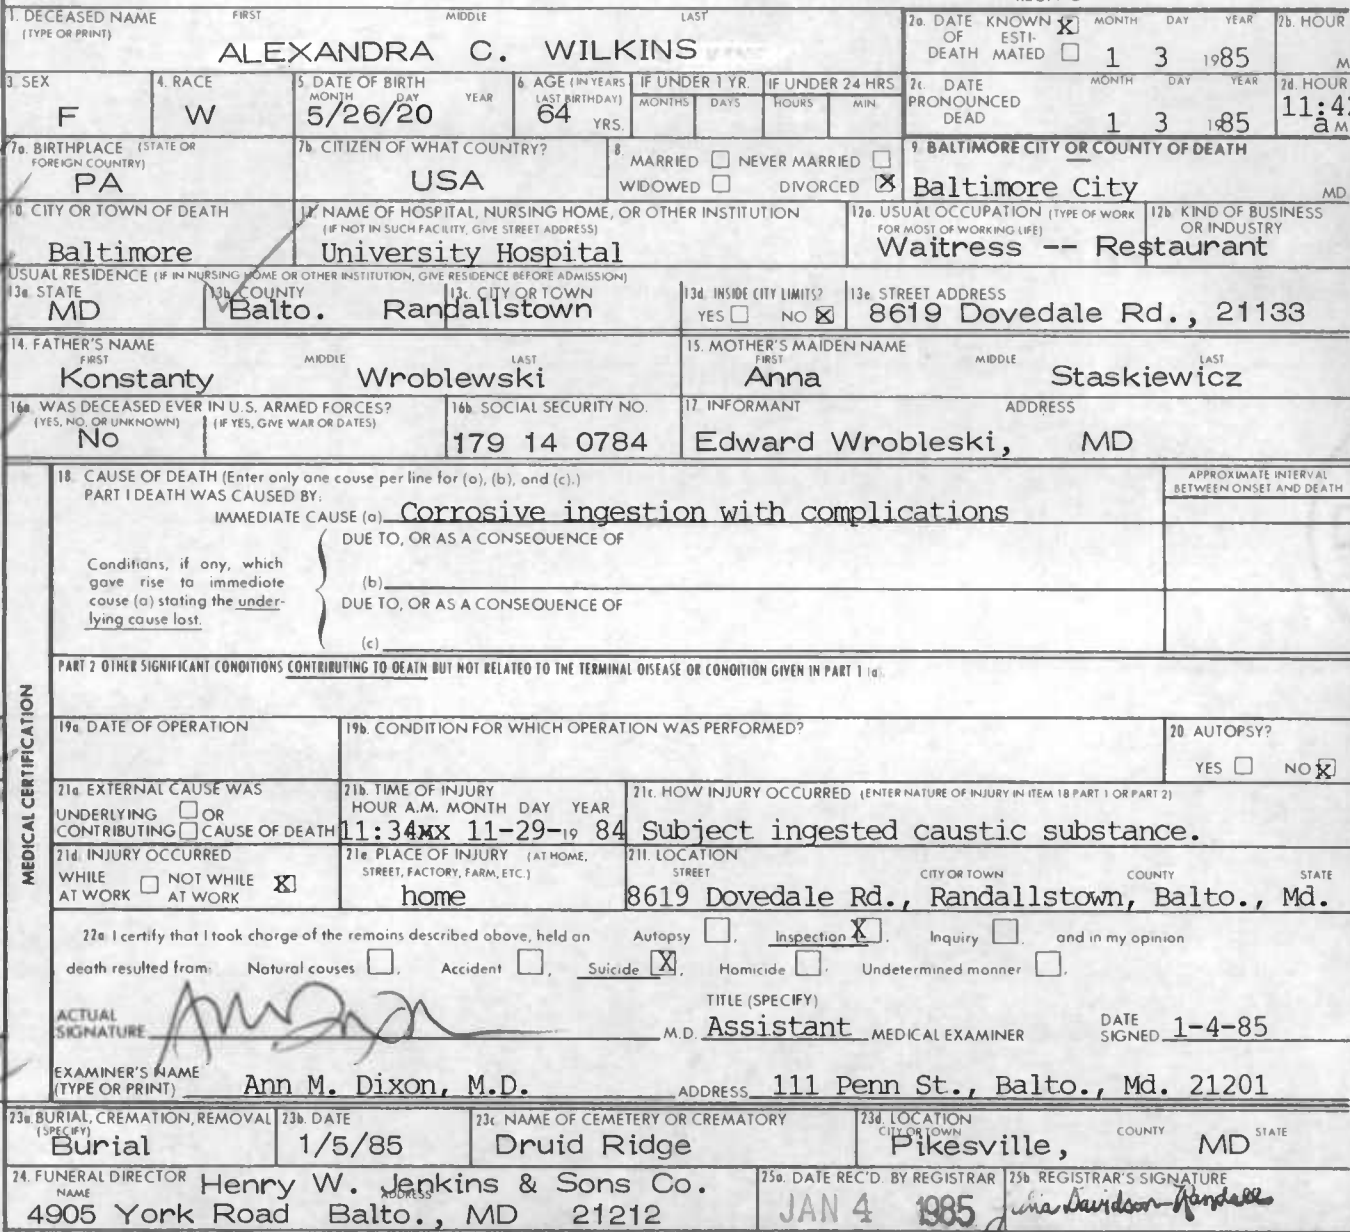 1. DECEASED NAME FIRST MIDDLE LAST
(TYPE OR PRINT)
ALEXANDRA C. WILKINS
2a. DATE KNOWN X MONTH DAY YEAR
OF ESTI-
DEATH MATED
1 3 1985
2b. HOUR
M
3. SEX
F
4. RACE
W
5. DATE OF BIRTH
MONTH DAY YEAR
5/26/20
6. AGE (IN YEARS
LAST BIRTHDAY)
64 YRS.
IF UNDER 1 YR.
MONTHS DAYS
IF UNDER 24 HRS
HOURS MIN.
2c. DATE MONTH DAY YEAR
PRONOUNCED
DEAD
1 3 1985
2d. HOUR
11:42
a M
7a. BIRTHPLACE (STATE OR
FOREIGN COUNTRY)
PA
7b. CITIZEN OF WHAT COUNTRY?
USA
8.
MARRIED NEVER MARRIED
WIDOWED DIVORCED X
9. BALTIMORE CITY OR COUNTY OF DEATH
Baltimore City MD
10. CITY OR TOWN OF DEATH
Baltimore
11. NAME OF HOSPITAL, NURSING HOME, OR OTHER INSTITUTION
(IF NOT IN SUCH FACILITY, GIVE STREET ADDRESS)
University Hospital
12a. USUAL OCCUPATION (TYPE OF WORK
FOR MOST OF WORKING LIFE)
12b. KIND OF BUSINESS
OR INDUSTRY
Waitress -- Restaurant
USUAL RESIDENCE (IF IN NURSING HOME OR OTHER INSTITUTION, GIVE RESIDENCE BEFORE ADMISSION)
13a. STATE
MD
13b. COUNTY
Balto.
13c. CITY OR TOWN
Randallstown
13d. INSIDE CITY LIMITS?
YES NO X
13e. STREET ADDRESS
8619 Dovedale Rd., 21133
14. FATHER'S NAME
FIRST MIDDLE LAST
Konstanty Wroblewski
15. MOTHER'S MAIDEN NAME
FIRST MIDDLE LAST
Anna Staskiewicz
16a. WAS DECEASED EVER IN U.S. ARMED FORCES?
(YES, NO, OR UNKNOWN) (IF YES, GIVE WAR OR DATES)
No
16b. SOCIAL SECURITY NO.
179 14 0784
17. INFORMANT ADDRESS
Edward Wrobleski, MD
MEDICAL CERTIFICATION
18. CAUSE OF DEATH (Enter only one cause per line for (a), (b), and (c).)
PART I DEATH WAS CAUSED BY:
IMMEDIATE CAUSE (a) Corrosive ingestion with complications
APPROXIMATE INTERVAL
BETWEEN ONSET AND DEATH
DUE TO, OR AS A CONSEQUENCE OF
Conditions, if any, which
gave rise to immediate
cause (a) stating the under-
lying cause last.
(b)
DUE TO, OR AS A CONSEQUENCE OF
(c)
PART 2 OTHER SIGNIFICANT CONDITIONS CONTRIBUTING TO DEATH BUT NOT RELATED TO THE TERMINAL DISEASE OR CONDITION GIVEN IN PART 1 (a).
19a. DATE OF OPERATION
19b. CONDITION FOR WHICH OPERATION WAS PERFORMED?
20. AUTOPSY?
YES NO X
21a. EXTERNAL CAUSE WAS
UNDERLYING OR
CONTRIBUTING CAUSE OF DEATH
21b. TIME OF INJURY
HOUR A.M. MONTH DAY YEAR
11:34MX 11-29-19 84
21c. HOW INJURY OCCURRED (ENTER NATURE OF INJURY IN ITEM 18 PART 1 OR PART 2)
Subject ingested caustic substance.
21d. INJURY OCCURRED
WHILE NOT WHILE X
AT WORK AT WORK
21e. PLACE OF INJURY (AT HOME,
STREET, FACTORY, FARM, ETC.)
home
21f. LOCATION
STREET CITY OR TOWN COUNTY STATE
8619 Dovedale Rd., Randallstown, Balto., Md.
22a. I certify that I took charge of the remains described above, held an Autopsy , Inspection X , Inquiry , and in my opinion
death resulted from: Natural causes , Accident , Suicide X , Homicide , Undetermined manner .
ACTUAL
SIGNATURE M.D.
TITLE (SPECIFY)
Assistant MEDICAL EXAMINER
DATE
SIGNED 1-4-85
EXAMINER'S NAME
(TYPE OR PRINT) Ann M. Dixon, M.D. ADDRESS 111 Penn St., Balto., Md. 21201
23a. BURIAL, CREMATION, REMOVAL
(SPECIFY)
Burial
23b. DATE
1/5/85
23c. NAME OF CEMETERY OR CREMATORY
Druid Ridge
23d. LOCATION
CITY OR TOWN COUNTY STATE
Pikesville, MD
24. FUNERAL DIRECTOR
NAME ADDRESS
Henry W. Jenkins & Sons Co.
4905 York Road Balto., MD 21212
25a. DATE REC'D. BY REGISTRAR
JAN 4 1985
25b. REGISTRAR'S SIGNATURE
Davidson-Randall